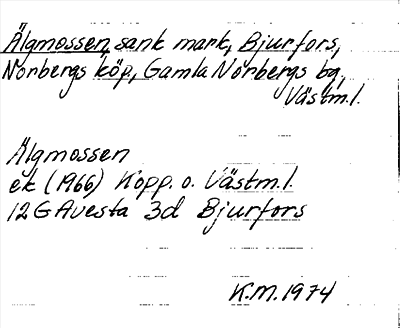 Älgmossen, sank mark, Bjurfors,
Norbergs köp., Gamla Norbergs bg,
Västm.l.
Älgmossen
ek (1966) Kopp. o. Västm.l.
12 G Avesta 3d Bjurfors
K.M. 1974